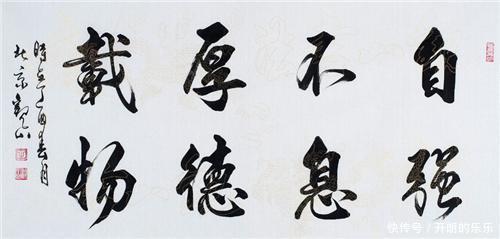 自强
不息
厚德
載物
時在丁酉春月
北京
快传号/开朗的乐乐